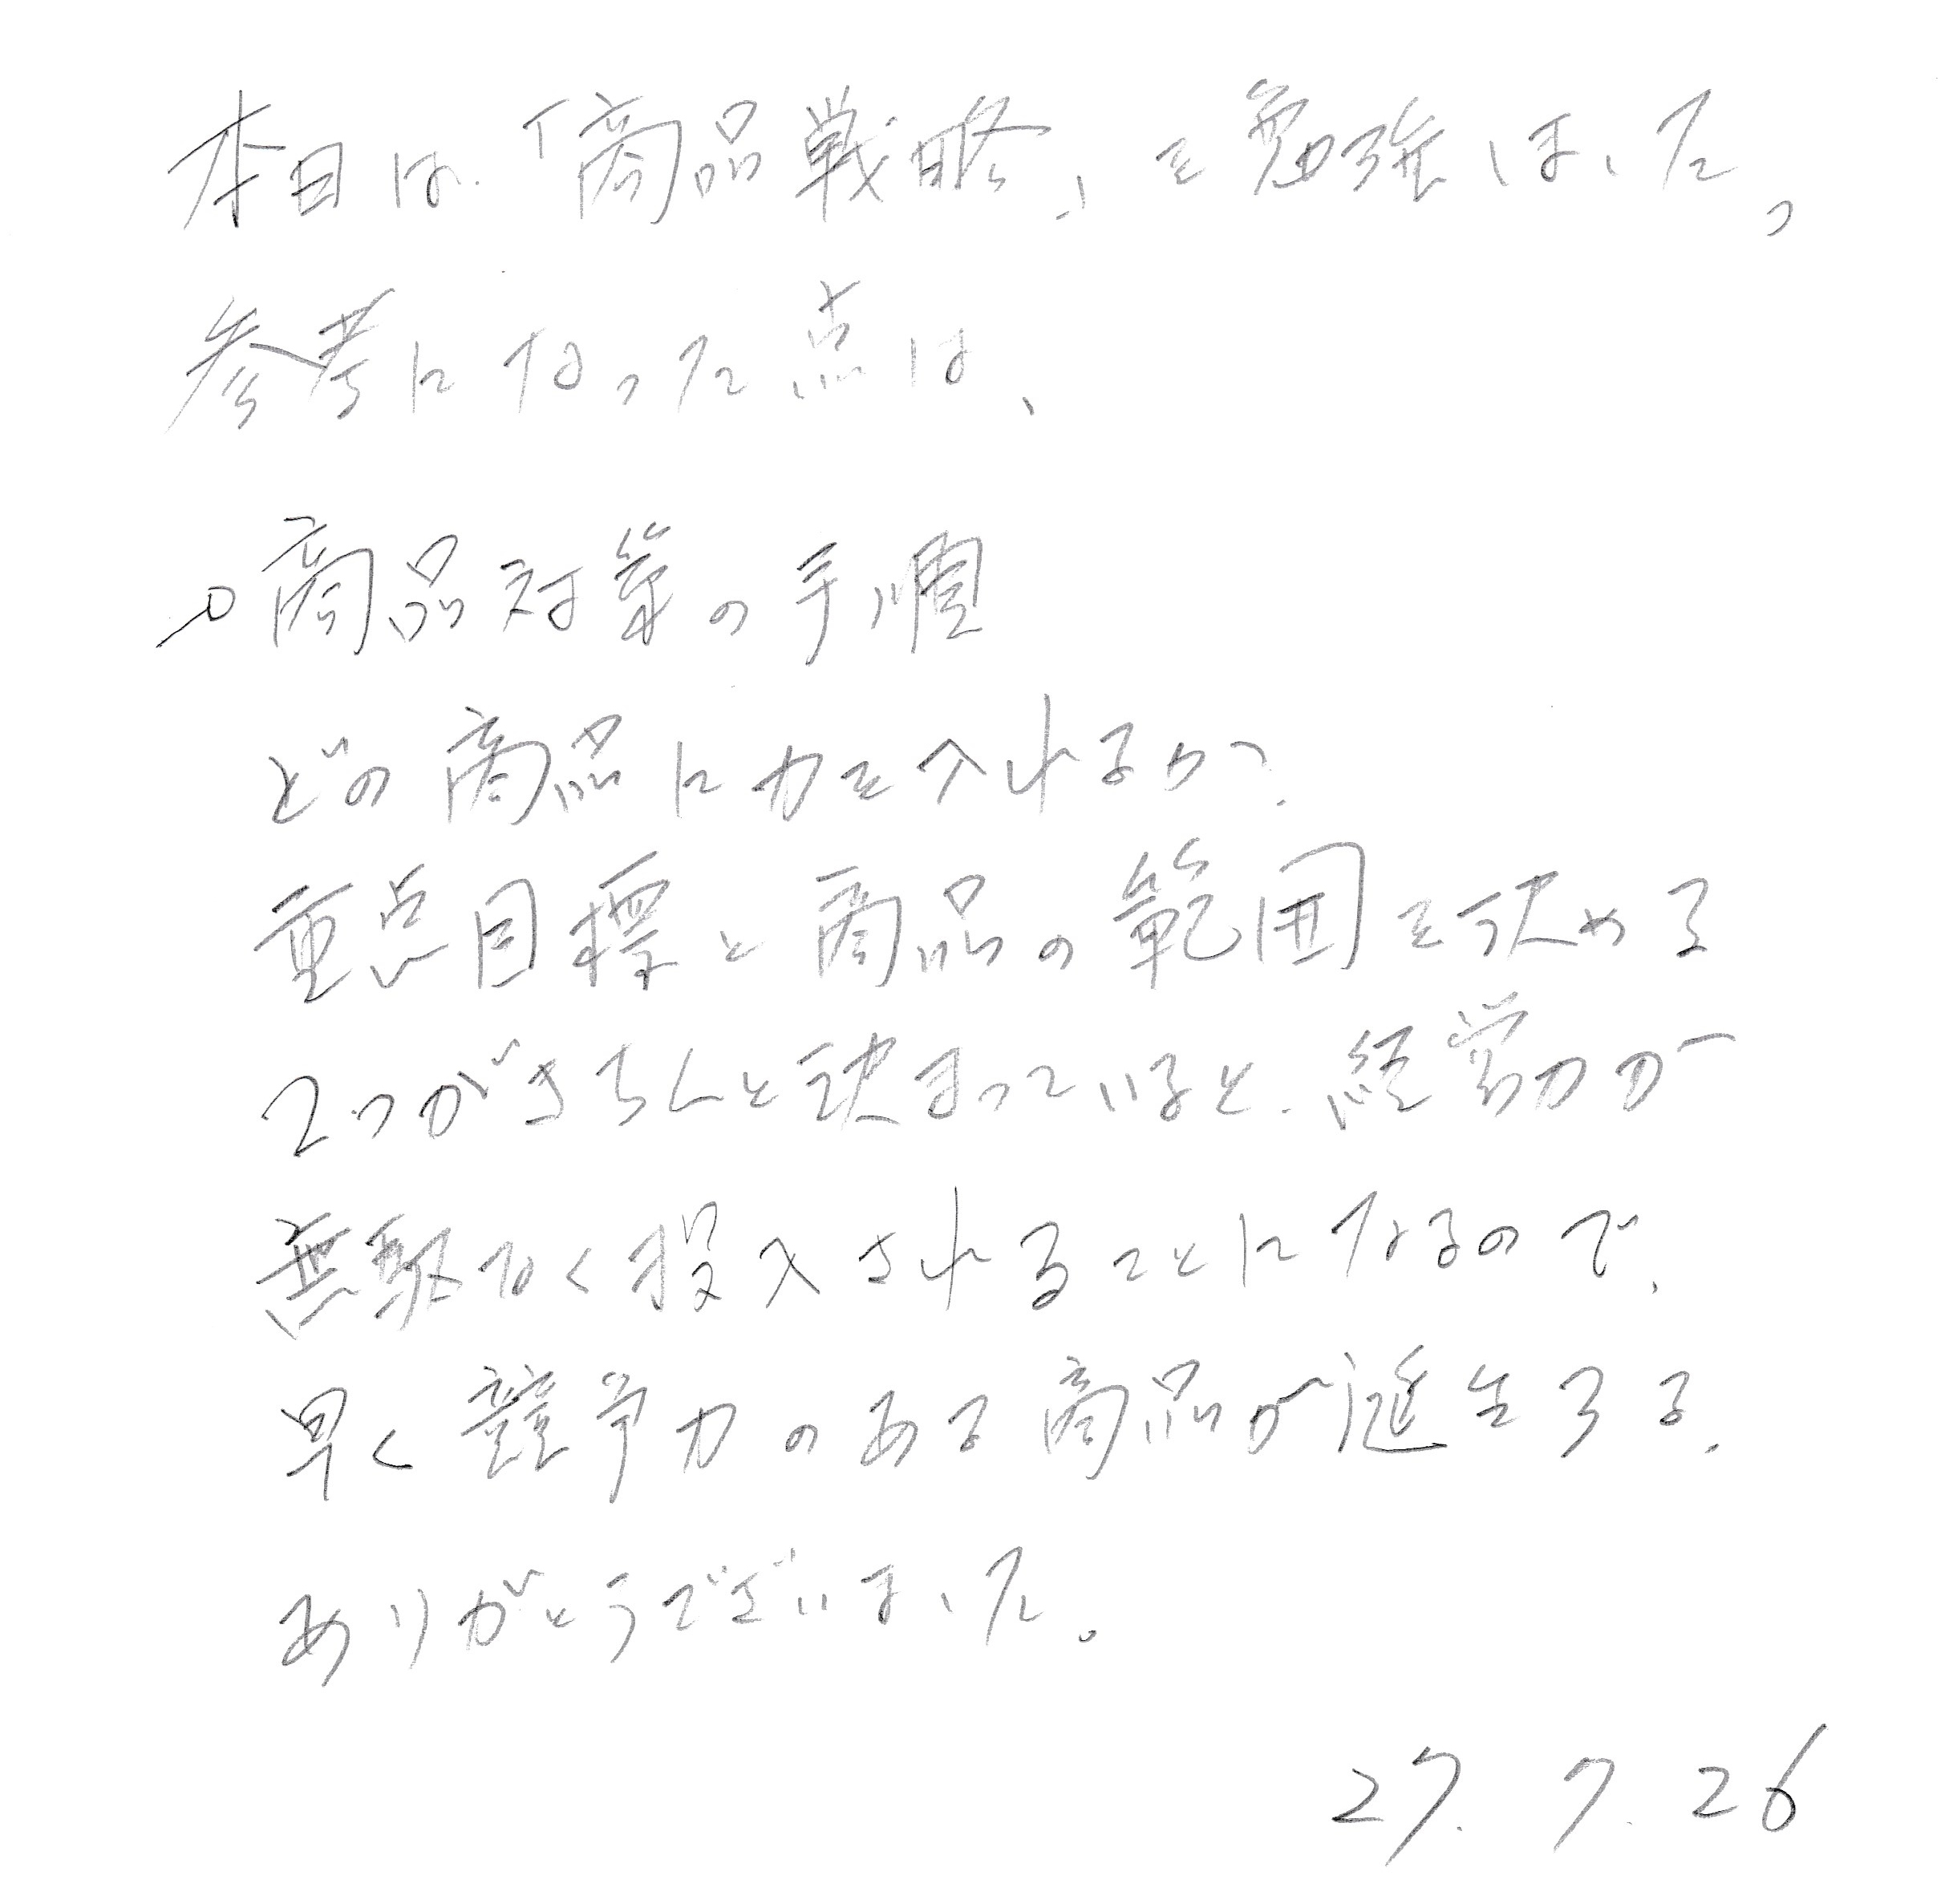 本日は「商品戦略」を勉強しました。
参考になった点は、
○商品対策の手順
どの商品に力を入れるか?
重点目標と商品の範囲を決める
2つがきちんと決まっていると、経営力が
無駄なく投入されることになるので、
早く競争力のある商品が誕生する。
ありがとうございました。
27.7.26